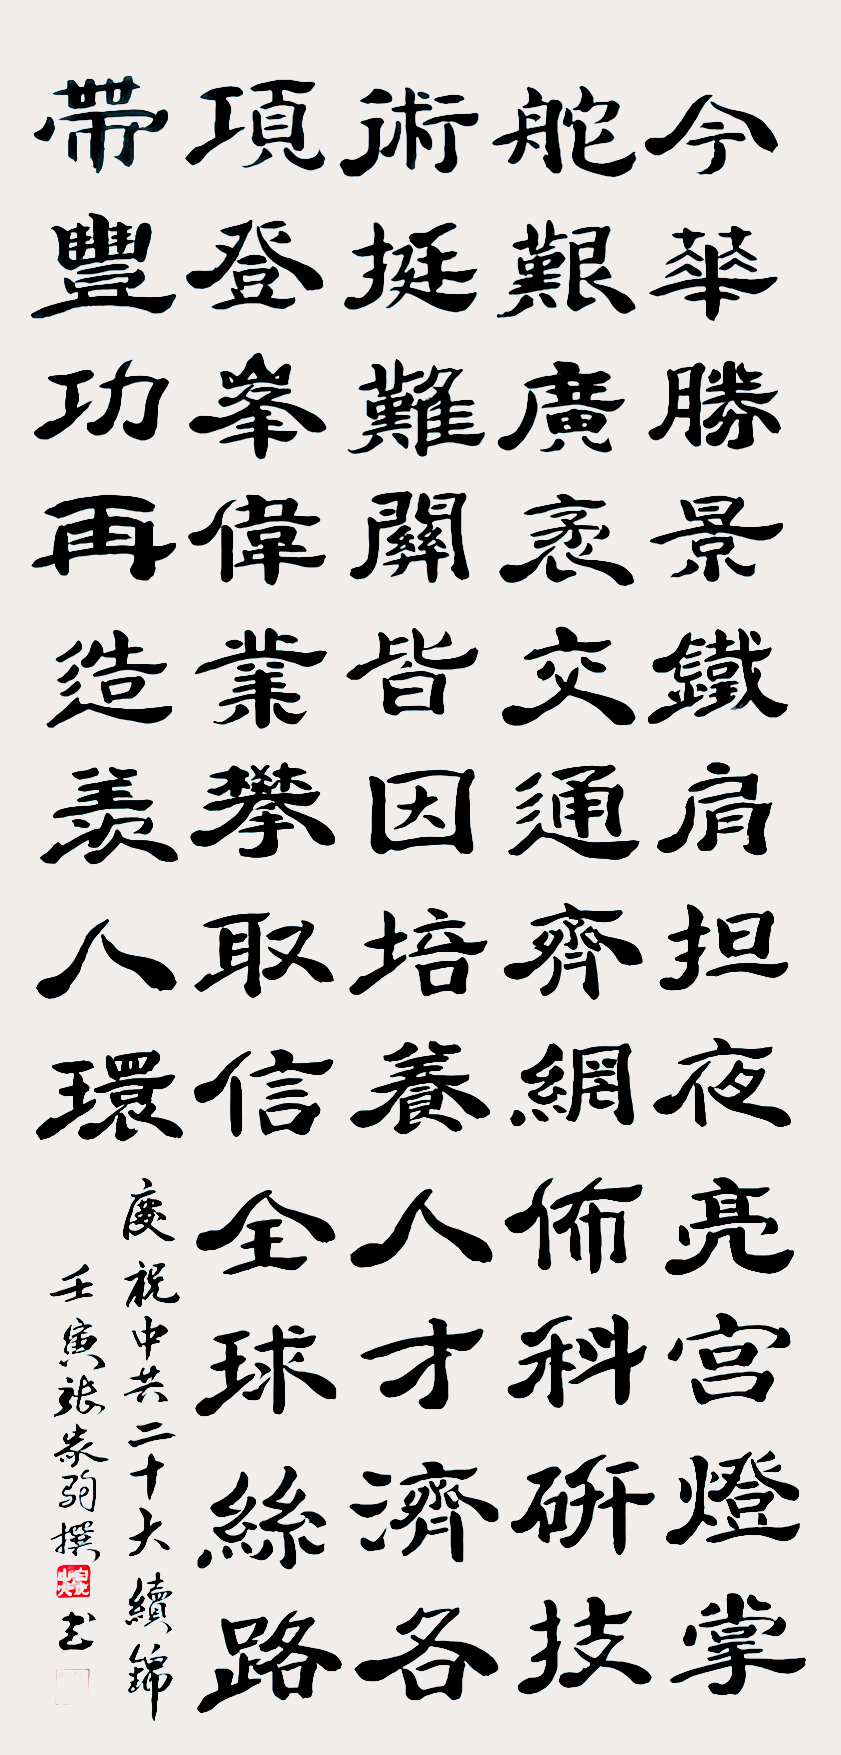 今華勝景鐵肩担夜亮宫燈掌
舵艱廣袤交通齊網佈科研技
術挺難關皆因培養人才濟各
項登峯偉業攀取信全球絲路
帶豐功再造羨人環
慶祝中共二十大續錦
壬寅張家駒撰
书